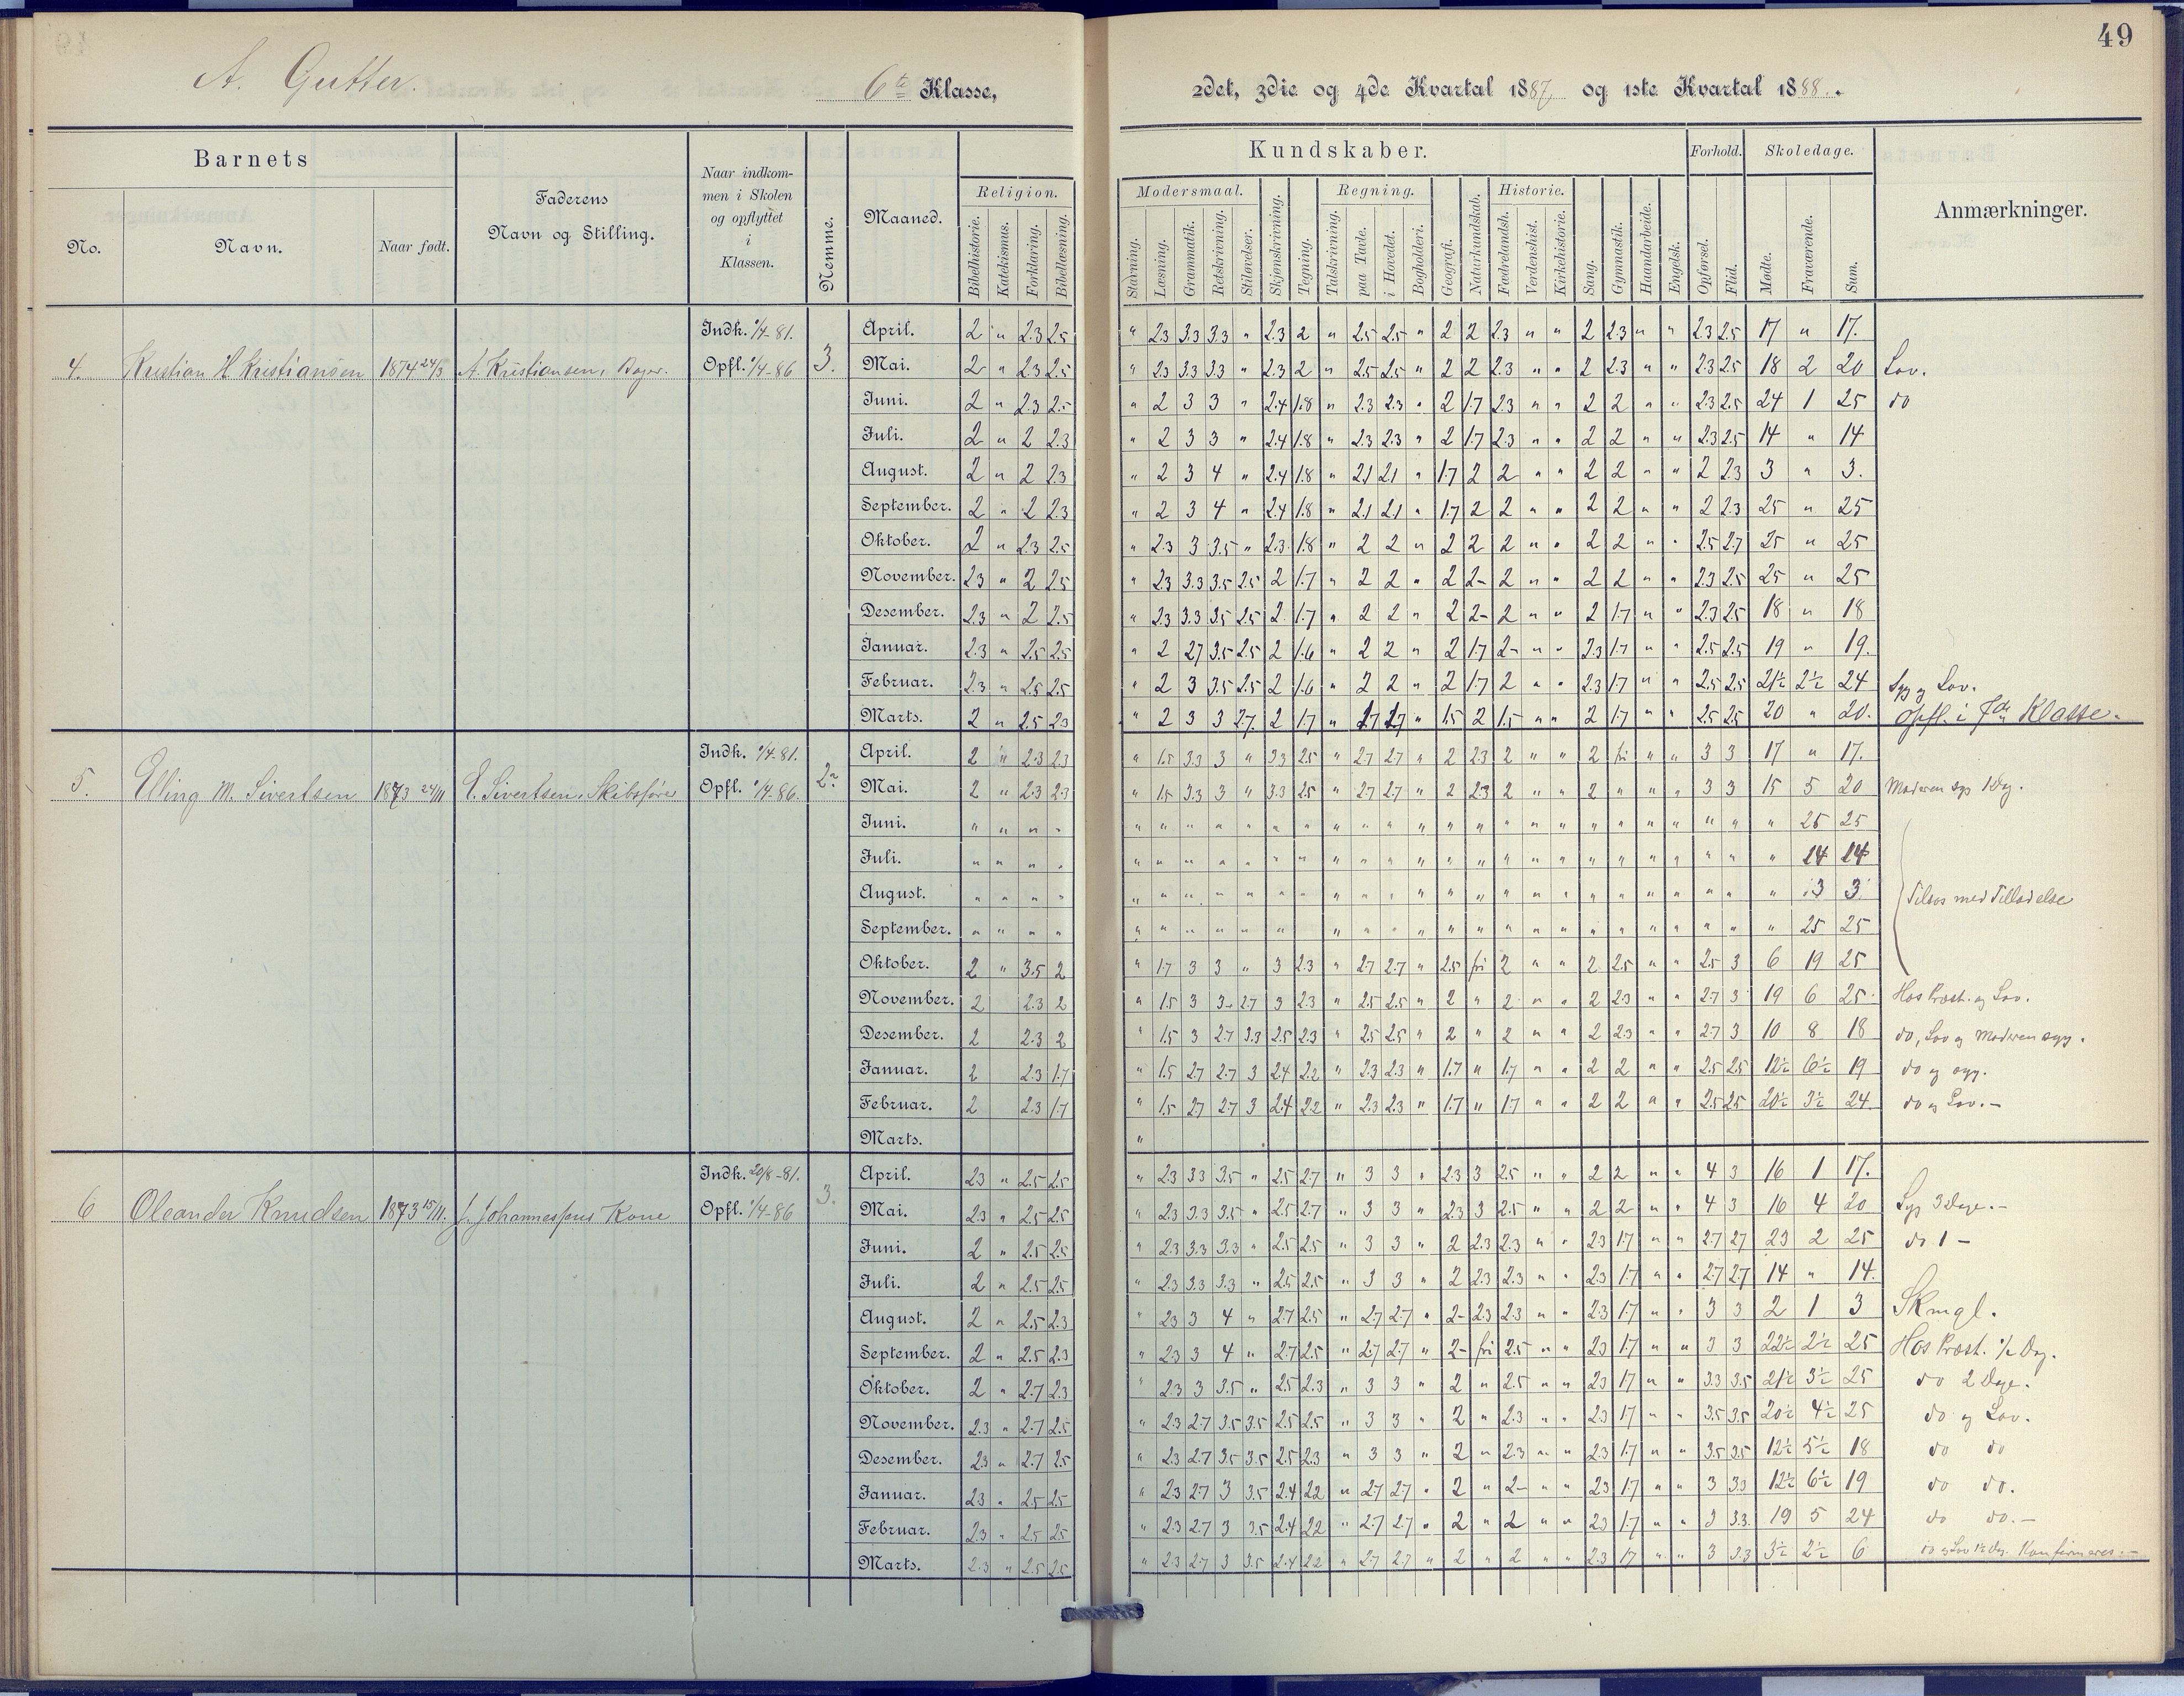 49
A. Gutter. 6te Klasse, 2det, 3die og 4de Kvartal 1887, og 1ste Kvartal 1888.
Barnets
No.
Navn.
Naar født.
Faderens
Navn og Stilling.
Naar indkom-
men i Skolen
og opflyttet
i
Klassen.
Nemme.
Maaned.
Kundskaber.
Religion.
Bibelhistorie.
Katekismus.
Forklaring.
Bibellæsning.
Modersmaal.
Stavning.
Læsning.
Grammatik.
Retskrivning.
Stiløvelser.
Skjønskrivning.
Tegning.
Regning.
Talskrivning.
paa Tavle.
i Hovedet.
Bogholderi.
Geografi.
Naturkundskab.
Historie.
Fædrelandsh.
Verdenshist.
Kirkehistorie.
Sang.
Gymnastik.
Haandarbeide.
Engelsk.
Forhold.
Opførsel.
Flid.
Skoledage.
Mødte.
Fraværende.
Sum.
Anmærkninger.
4. Kristian H. Kristiansen 1874 24/3 A. Kristiansen, Bager. Indk. 1/4-81. Opfl. 1/4-86 3.
April. 2 " 2.3 2.5 " 2.3 3.3 3.3 " 2.3 2 " 2.5 2.5 " 2 2 2.3 " " 2 2.3 " " 2.3 2.5 17 " 17.
Mai. 2 " 2.3 2.5 " 2.3 3.3 3.3 " 2.3 2 " 2.5 2.5 " 2 2 2.3 " " 2 2.3 " " 2.3 2.5 18 2 20 Lov.
Juni. 2 " 2.3 2.5 " 2 3 3 " 2.4 1.8 " 2.3 2.3 " 2 1.7 2.3 " " 2 2 " " 2.3 2.5 24 1 25 do
Juli. 2 " 2 2.3 " 2 3 3 " 2.4 1.8 " 2.3 2.3 " 2 1.7 2.3 " " 2 2 " " 2.3 2.5 14 " 14
August. 2 " 2 2.3 " 2 3 4 " 2.4 1.8 " 2.1 2.1 " 1.7 2 2 " " 2 2 " " 2 2.3 3 " 3.
September. 2 " 2 2.3 " 2 3 4 " 2.4 1.8 " 2.1 2.1 " 1.7 2 2 " " 2 2 " " 2 2.3 25 " 25
Oktober. 2 " 2.3 2.5 " 2.3 3 3.5 " 2.3 1.8 " 2 2 " 2 2 2 " " 2 2 " " 2.5 2.7 25 " 25
November. 2.3 " 2 2.5 " 2.3 3.3 3.5 2.5 2 1.7 " 2 2 " 2 2- 2 " " 2 2 " " 2.3 2.5 25 " 25
Desember. 2.3 " 2 2.5 " 2.3 3.3 3.5 2.5 2 1.7 " 2 2 " 2 2- 2 " " 2 1.7 " " 2.3 2.5 18 " 18
Januar. 2.3 " 2.5 2.5 " 2 2.7 3.5 2.5 2 1.6 " 2 2 " 2 1.7 2- " " 2.3 1.7 " " 2.5 2.5 19 " 19.
Februar. 2.3 " 2.5 2.5 " 2 3 3.5 2.5 2 1.6 " 2 2 " 2 1.7 2 " " 2.3 1.7 " " 2.5 2.5 21½ 2½ 24 Syg og Lov.
Marts. 2 " 2.5 2.3 " 2 3 3 2.7. 2 1.7 " 1.7 1.7 " 1.5 2 1.5 " " 2 1.7 " " 2.5 2.5 20 " 20. Opfl. i 7de Klasse.
5. Elling M. Sivertsen 1873 24/11 E. Sivertsen, Skibsfører Indk. 1/4-81. Opfl. 1/4-86. 2.
April. 2 " 2.3 2.3 " 1.5 3.3 3 " 3.3 2.5 " 2.7 2.7 " 2 2.3 2 " " 2 fri " " 3 3 17 " 17.
Mai. 2 " 2.3 2.3 " 1.5 3.3 3 " 3.3 2.5 " 2.7 2.7 " 2 2.3 2 " " 2 " " " 3 3 15 5 20 Moderen syg 1 Dag.
Juni. " " " " " " " " " " " " " " " " " " " " " " " " " " " 25 25
Juli. " " " " " " " " " " " " " " " " " " " " " " " " " " " 14 14
August. " " " " " " " " " " " " " " " " " " " " " " " " " " " 3 3 Tilsøs med Tilladelse
September. " " " " " " " " " " " " " " " " " " " " " " " " " " " 25 25
Oktober. 2 " 3.5 2 " 1.7 3 3 " 3 2.3 " 2.7 2.7 " 2.5 fri 2 " " 2 2.5 " " 2.5 3 6 19 25
November. 2 2.3 2 " 1.5 3 3- 2.7 3 2.3 " 2.5 2.5 " 2 " 2 " " 2 2.3 " " 2.7 3 19 6 25 Hos Præst. og Lov.
Desember. 2 2.3 2 " 1.5 3 2.7 3.3 2.5 2.3 " 2.5 2.5 " 2 " 2 " " 2 2.3 " " 2.7 3 10 8 18 do, Lov og Moderen syg.
Januar. 2 2.3 1.7 " 1.5 2.7 2.7 3 2.4 2.2 " 2.3 2.3 " 1.7 " 1.7 " " 2 2 " " 2.5 2.5 12½ 6½ 19 do og syg.
Februar. 2 2.3 1.7 " 1.5 2.7 2.7 3 2.4 2.2 " 2.3 2.3 " 1.7 " 1.7 " " 2 2 " " 2.5 2.5 20½ 3½ 24 do og Lov.-
Marts. "
6 Oleander Knudsen 1873 15/11. J. Johannesens Kone Indk. 20/8-81. Opfl. 1/4-86 3.
April. 2.3 " 2.5 2.5 " 2.3 3.3 3.5 " 2.5 2.7 " 3 3 " 2.3 3 2.5 " " 2 2 " " 4 3 16 1 17.
Mai. 2.3 " 2.5 2.5 " 2.3 3.3 3.5 " 2.5 2.7 " 3 3 " 2.3 3 2.5 " " 2 2 " " 4 3 16 4 20 Syg 3 Dage.-
Juni. 2 " 2.5 2.5 " 2.3 3.3 3.3 " 2.5 2.5 " 3 3 " 2 2.3 2.3 " " 2.3 1.7 " " 2.7 2.7 23 2 25 do 1 -
Juli. 2 " 2.5 2.5 " 2.3 3.3 3.3 " 2.5 2.5 " 3 3 " 2 2.3 2.3 " " 2.3 1.7 " " 2.7 2.7 14 " 14.
August. 2 " 2.5 2.3 " 2.3 3 4 " 2.7 2.5 " 2.7 2.7 " 2- 2.3 2.3 " " 2.3 1.7 " " 3 3 2 1 3 Skmgl.
September. 2 " 2.5 2.3 " 2.3 3 4 " 2.7 2.5 " 2.7 2.7 " 2- fri 2.5 " " 2.3 1.7 " " 3 3 22½ 2½ 25 Hos Præst. ½ Dag.
Oktober. 2 " 2.7 2.3 " 2.3 3 3.5 " 2.5 2.3 " 3 3 " 2 " 2.5 " " 2.3 1.7 " " 3.3 3.5 21½ 3½ 25 do 2 Dage.
November. 2.3 " 2.7 2.5 " 2.3 2.7 3.5 3.5 2.5 2.5 " 3 3 " 2 " 2.3 " " 2.3 1.7 " " 3.5 3.5 20½ 4½ 25 do og Lov.
Desember. 2.3 " 2.7 2.5 " 2.3 2.7 3.5 3.5 2.5 2.3 " 3 3 " 2 " 2.3 " " 2.3 1.7 " " 3.5 3.5 12½ 5½ 18 do do
Januar. 2.3 " 2.5 2.5 " 2.3 2.7 3 3.5 2.4 2.2 " 2.7 2.7 " 2 " 2- " " 2.3 1.7 " " 3 3.3 12½ 6½ 19 do do.
Februar. 2.3 " 2.5 2.5 " 2.3 2.7 3 3.5 2.4 2.2 " 2.7 2.7 " 2 " 2 " " 2.3 1.7 " " 3 3.3. 19 5 24 do do.-
Marts. 2.3 " 2.5 2.5 " 2.3 2.7 3 3.5 2.4 2.2 " 2.7 2.7 " 2 " 2 " " 2.3 1.7 " " 3 3.3 3½ 2½ 6 do og Lov 1½ Dag. Konfirmeres.-